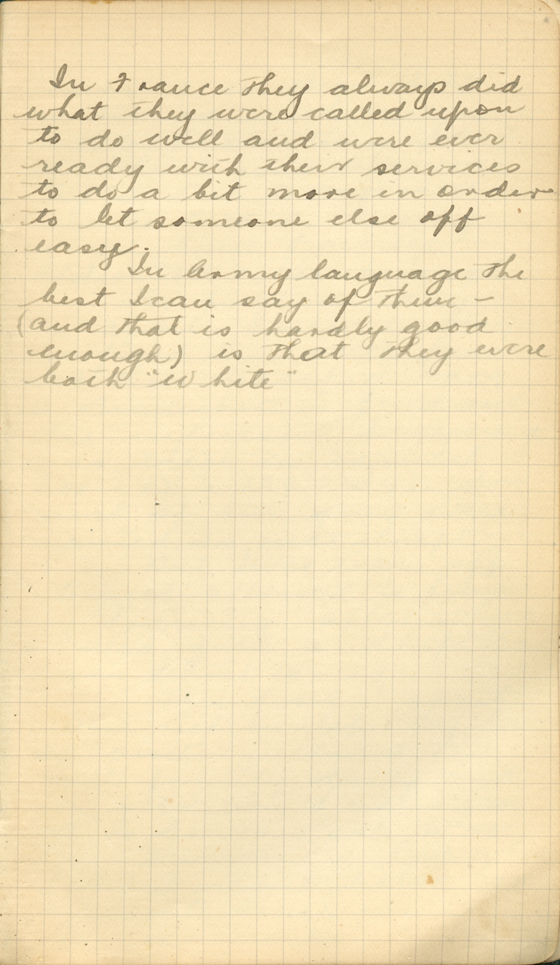 In France they always did
what they were called upon
to do well and were ever
ready with their services
to do a bit more in order
to let someone else off
easy.
In Army language the
best I can say of them -
(and that is hardly good
enough) is that they were
both "White"